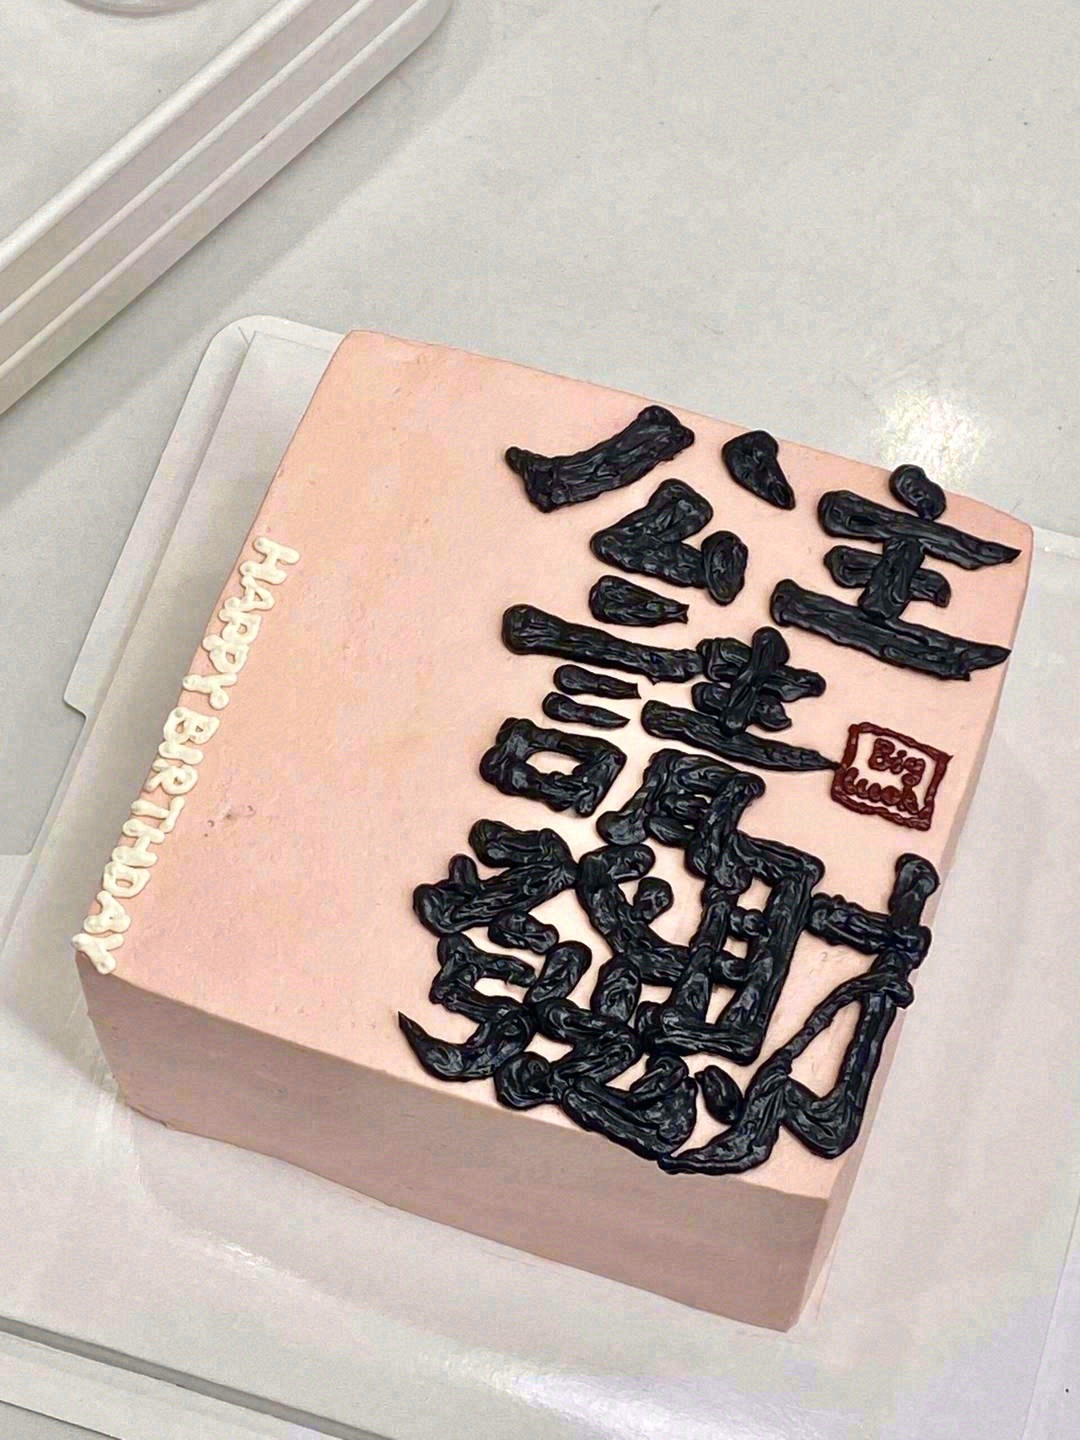 公主
請
發財
Big
Luck
HAPPY BIRTHDAY